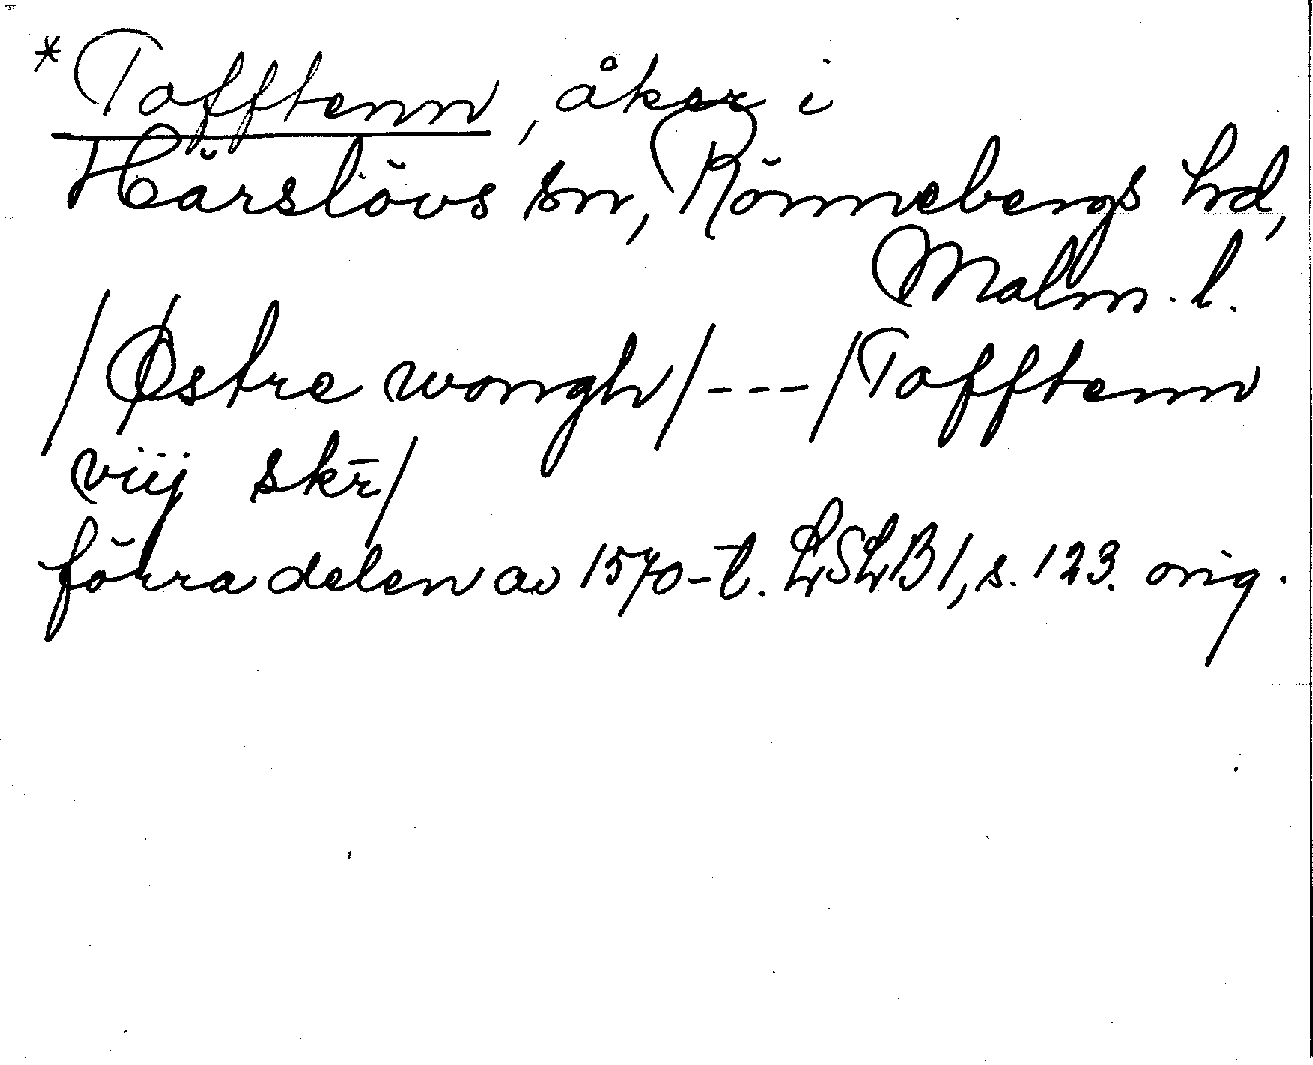 *Tofftenn, åker i
Härslövs sn, Rönnebergs hd,
Malm. l.
/Østre wongh/---/Tofftenn
viij skr̄/
förra delen av 1570-t. LSLB1, s. 123. orig.